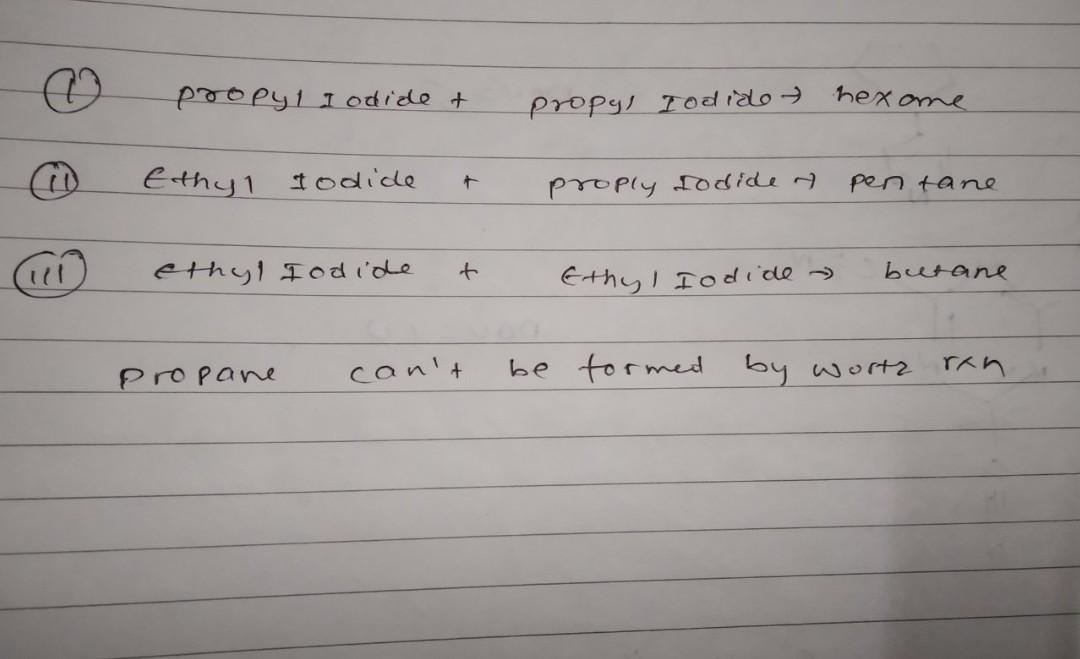 (i) propyl Iodide + propyl Iodide → hexane
(ii) Ethyl Iodide + proply Iodide → pentane
(iii) ethyl Iodide + Ethyl Iodide → butane
propane can't be formed by wortz rxn